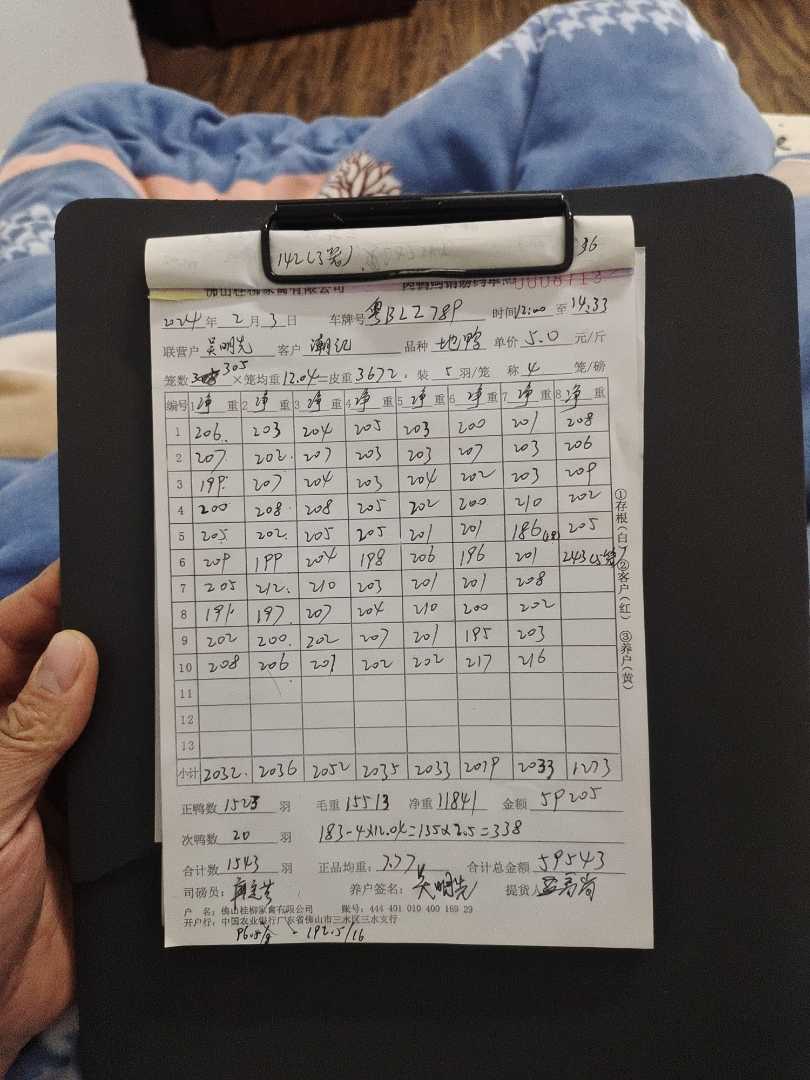 142(3笼) 36
佛山桂柳家禽有限公司 肉鸭鸡销售约单 0008713
2024年2月3日 车牌号 粤BLZ789 时间12:00至14:33
联营户 吴明先 客户 潮记 品种 地鸭 单价 5.0 元/斤
笼数 305 ×笼均重12.04=皮重3672,装 5 羽/笼 称 4 笼/磅
编号 1净重 2净重 3净重 4净重 5净重 6净重 7净重 8净重
1 206. 203 204 205 203 200 201 208
2 207. 202. 207 203 203 207 203 206
3 199. 207 204 203 204 202 203 209
4 200 208. 208 205 202 200 210 202
5 205 202. 205 205 201 201 186 205
6 209 199 204 198 206 196 201 243(5笼)
7 205 212. 210 203 201 201 208
8 191 197. 207 204 210 200 202
9 202 200. 202 207 201 195 203
10 208 206 201 202 202 217 216
11
12
13
小计 2032. 2036 2052 2035 2033 2019 2033 1273
①存根(白)②客户(红)③养户(黄)
正鸭数 1523 羽 毛重 15513 净重 11841 金额 59205
次鸭数 20 羽 183-4×12.04=135×2.5=338
合计数 1543 羽 正品均重: 7.77 合计总金额 59543
司磅员: 养户签名: 吴明先 提货人
户 名:佛山桂柳家禽有限公司 账号:444 401 010 400 169 29
开户行:中国农业银行广东省佛山市三水区三水支行
192.5/16